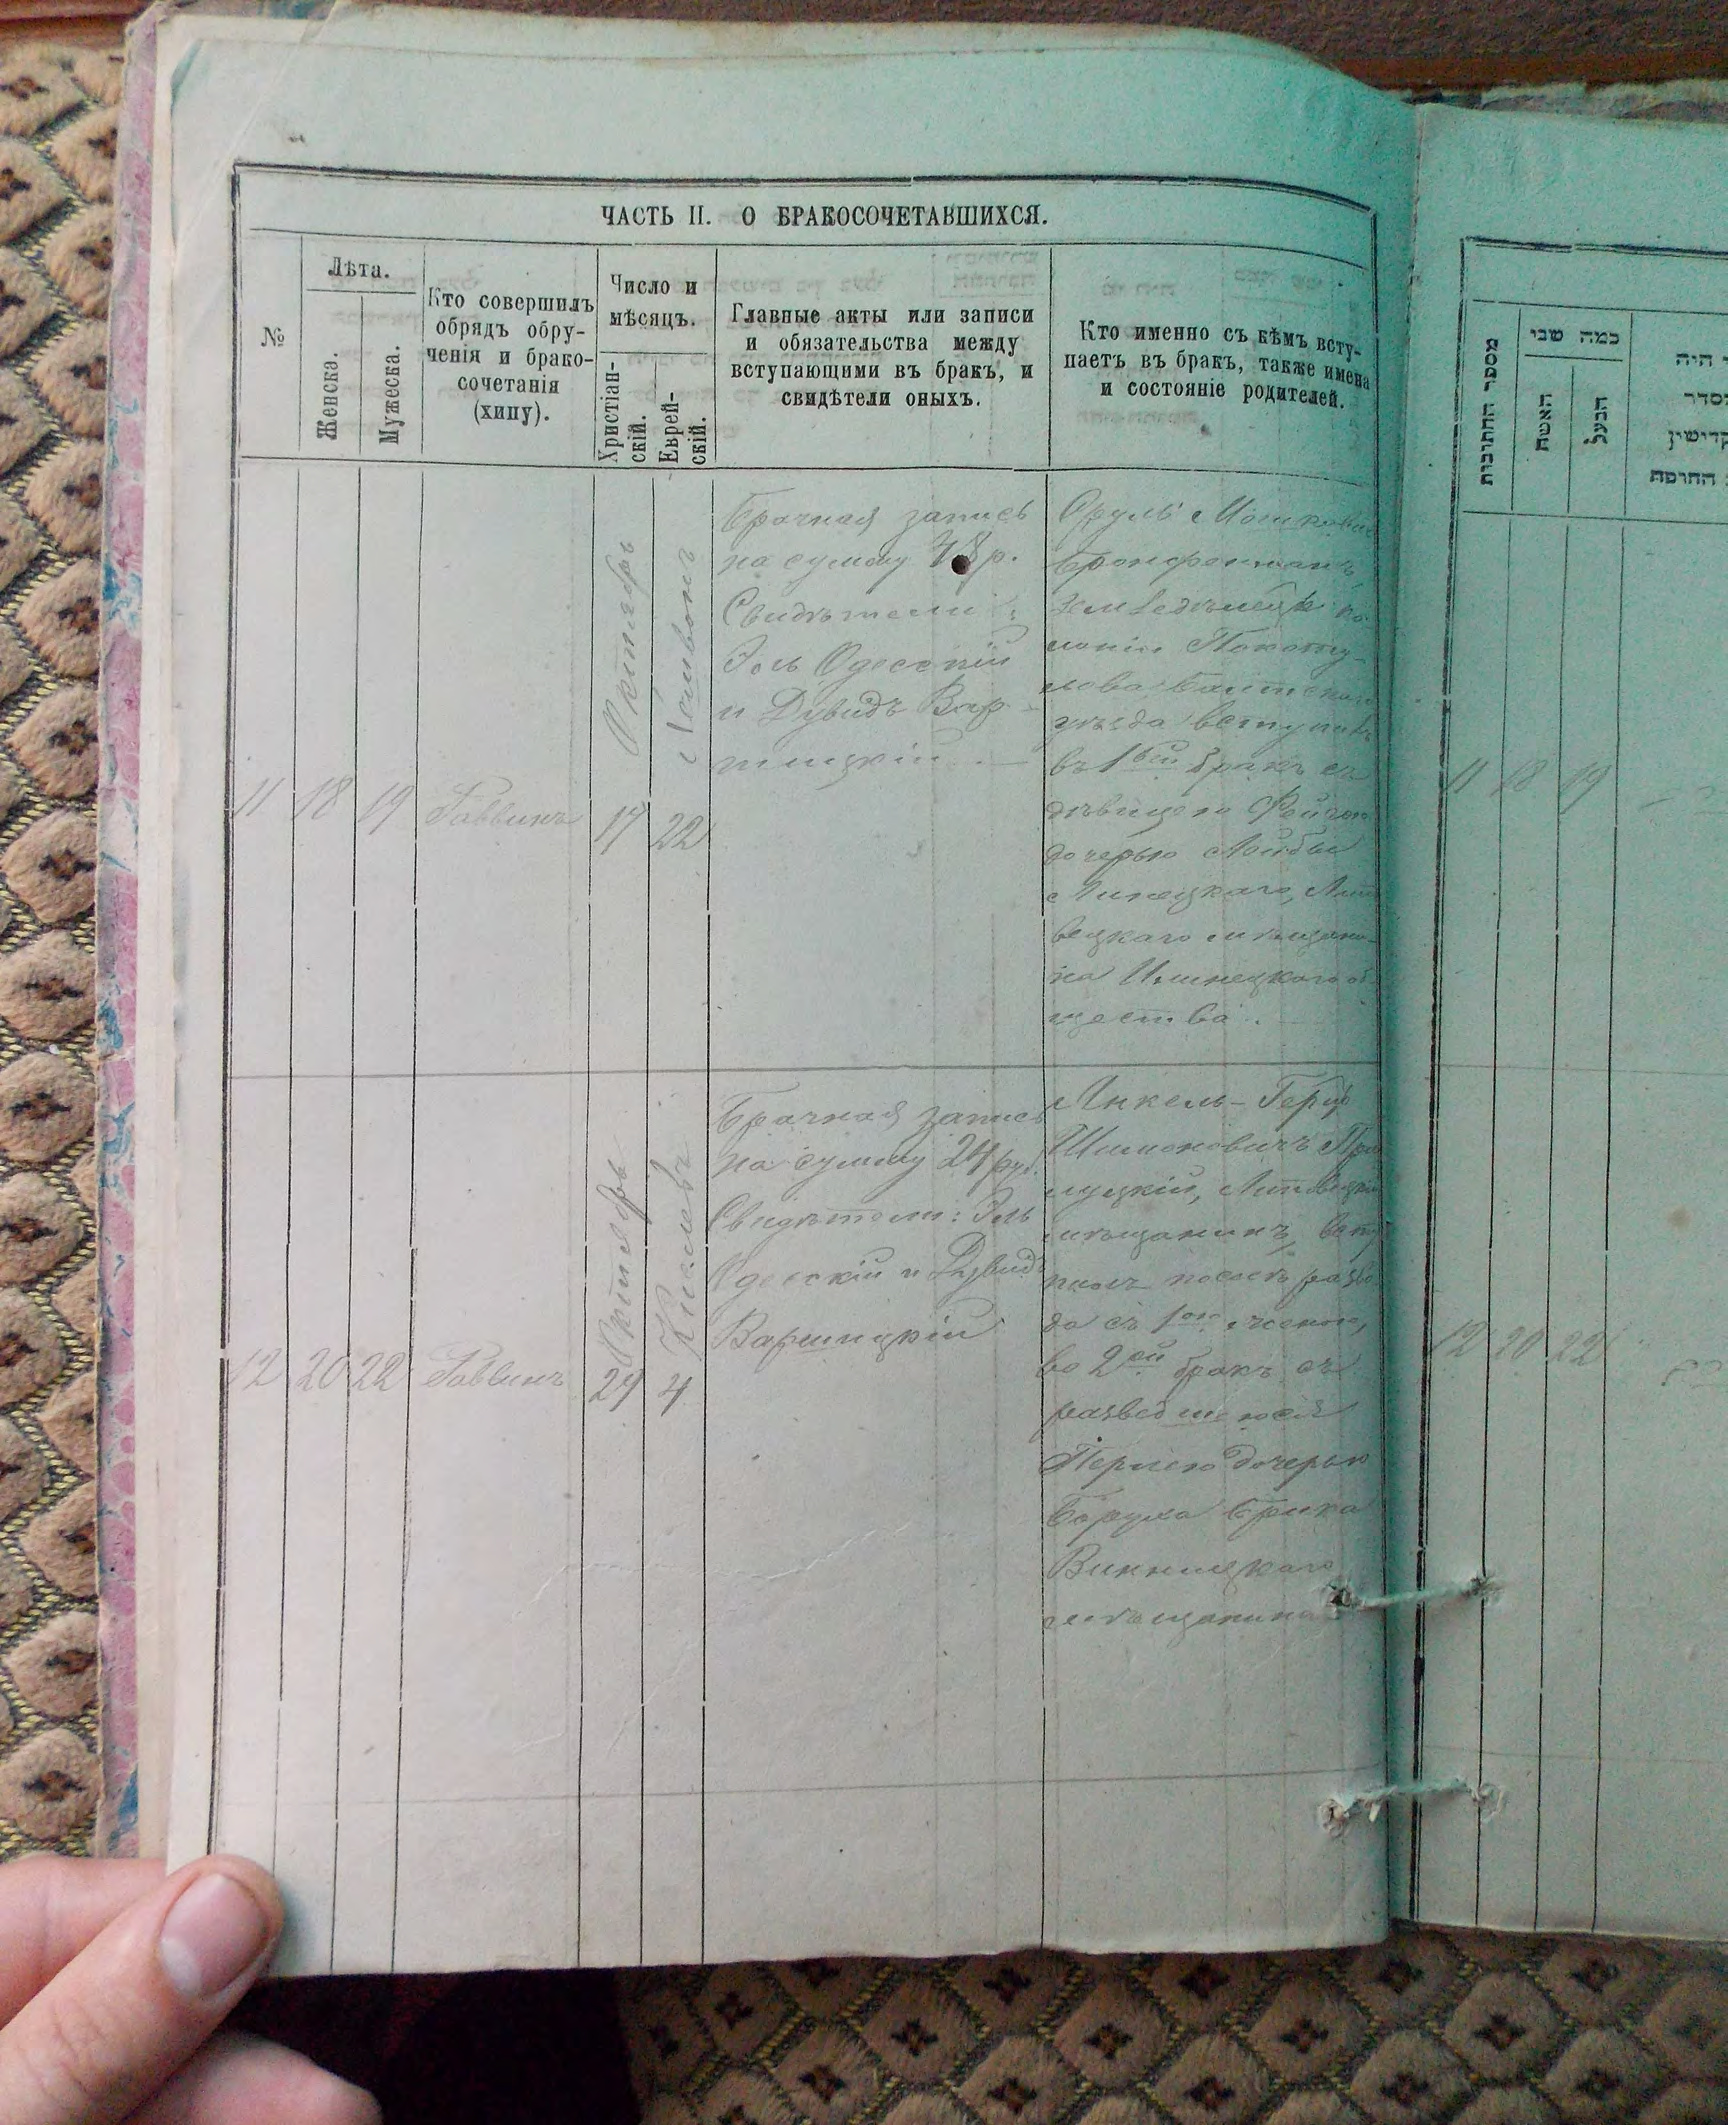 ЧАСТЬ II. О БРАКОСОЧЕТАВШИХСЯ.
№
Лѣта.
Женска.
Мужеска.
Кто совершилъ
обрядъ обру-
ченія и брако-
сочетанія
(хипу).
Число и
мѣсяцъ.
Христіан-
скій.
Еврей-
скій.
Главные акты или записи
и обязательства между
вступающими въ бракъ, и
свидѣтели оныхъ.
Кто именно съ кѣмъ всту-
паетъ въ бракъ, также имена
и состояніе родителей.
11
18
19
Раввинъ
Октябрь
17
22
Брачная запись
на сумму 48 р.
Свидѣтели:
Эль Одесскій
и Дувидъ Вар-
шицкій.
Сруль Мошковичъ
Бронфенманъ,
Земледѣлецъ ко-
лоніи
Балтскаго
уѣзда вступилъ
въ 1вый бракъ съ
дѣвицею
дочерью Лейбы
Липецкаго,
вецкаго мѣщани-
на Илинецкаго об-
щества.
12
20
22
Раввинъ
Октябрь
24
Кислевъ
4
Брачная запись
на сумму 24 руб.
Свидѣтели: Эль
Одесскій и Дувидъ
Варшицкій
Янкель-Герш
Шимоновичъ При-
луцкій,
мѣщанинъ, всту-
пилъ послѣ разво-
да съ 1ою женою,
во 2ой бракъ съ
разведшеюся
Перлею дочерью
Боруха Брика
Винницкаго
мѣщанина
מספר החתונות
כמה שני
האשה
הבעל
היה
11
18
19
12
20
22